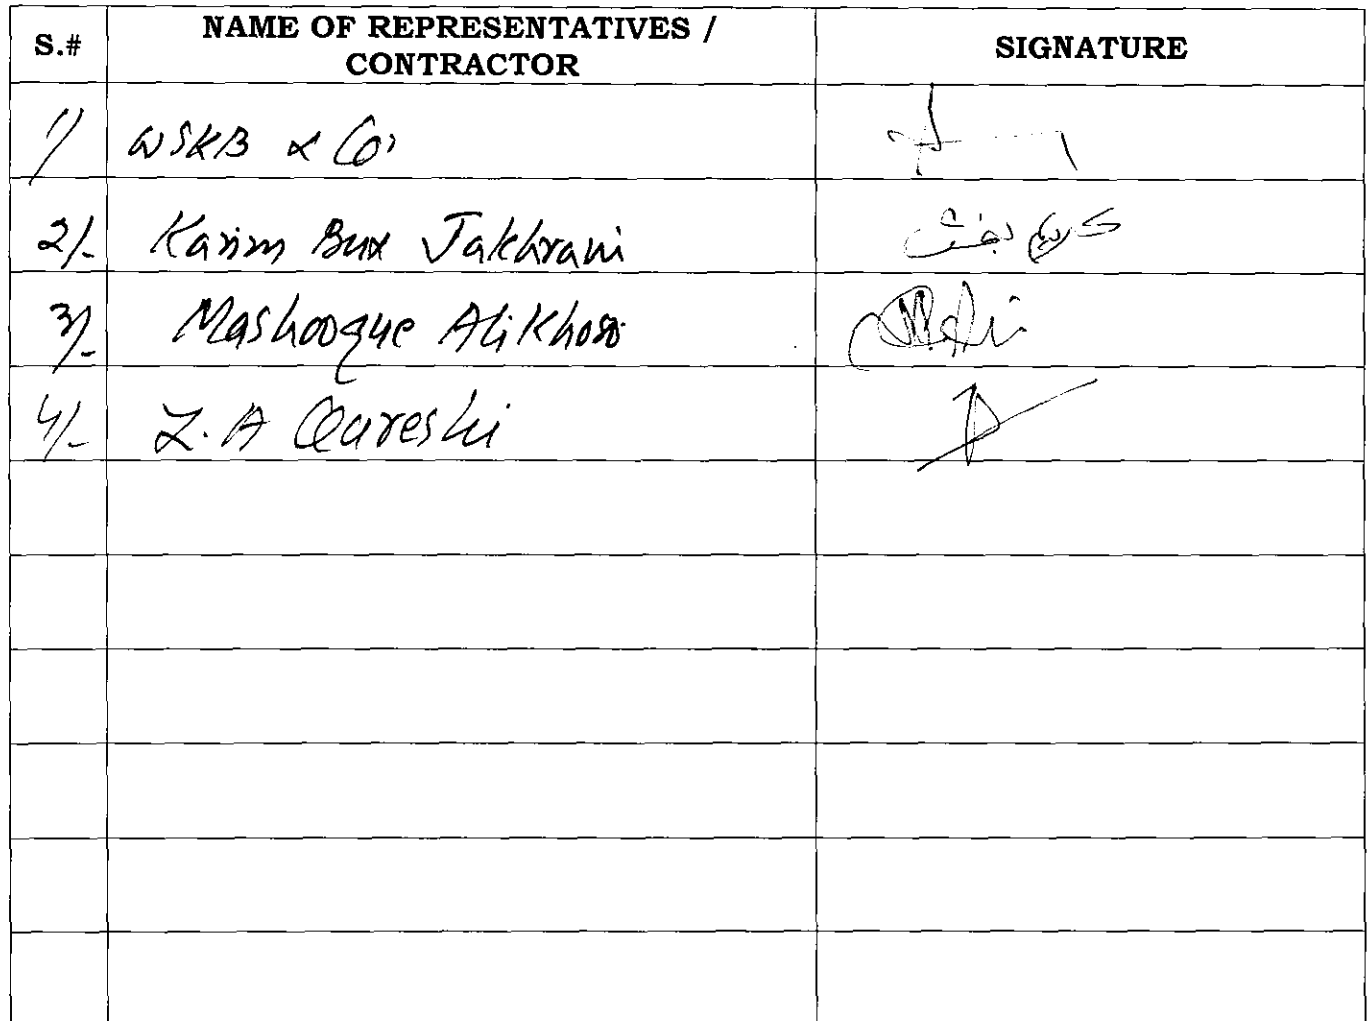 S.# NAME OF REPRESENTATIVES / CONTRACTOR SIGNATURE
1/ WSKB & Co,
2/- Karim Bux Jakhrani کریم بخش
3/- Mashooque Ali Khoso
4/- Z. A Qureshi